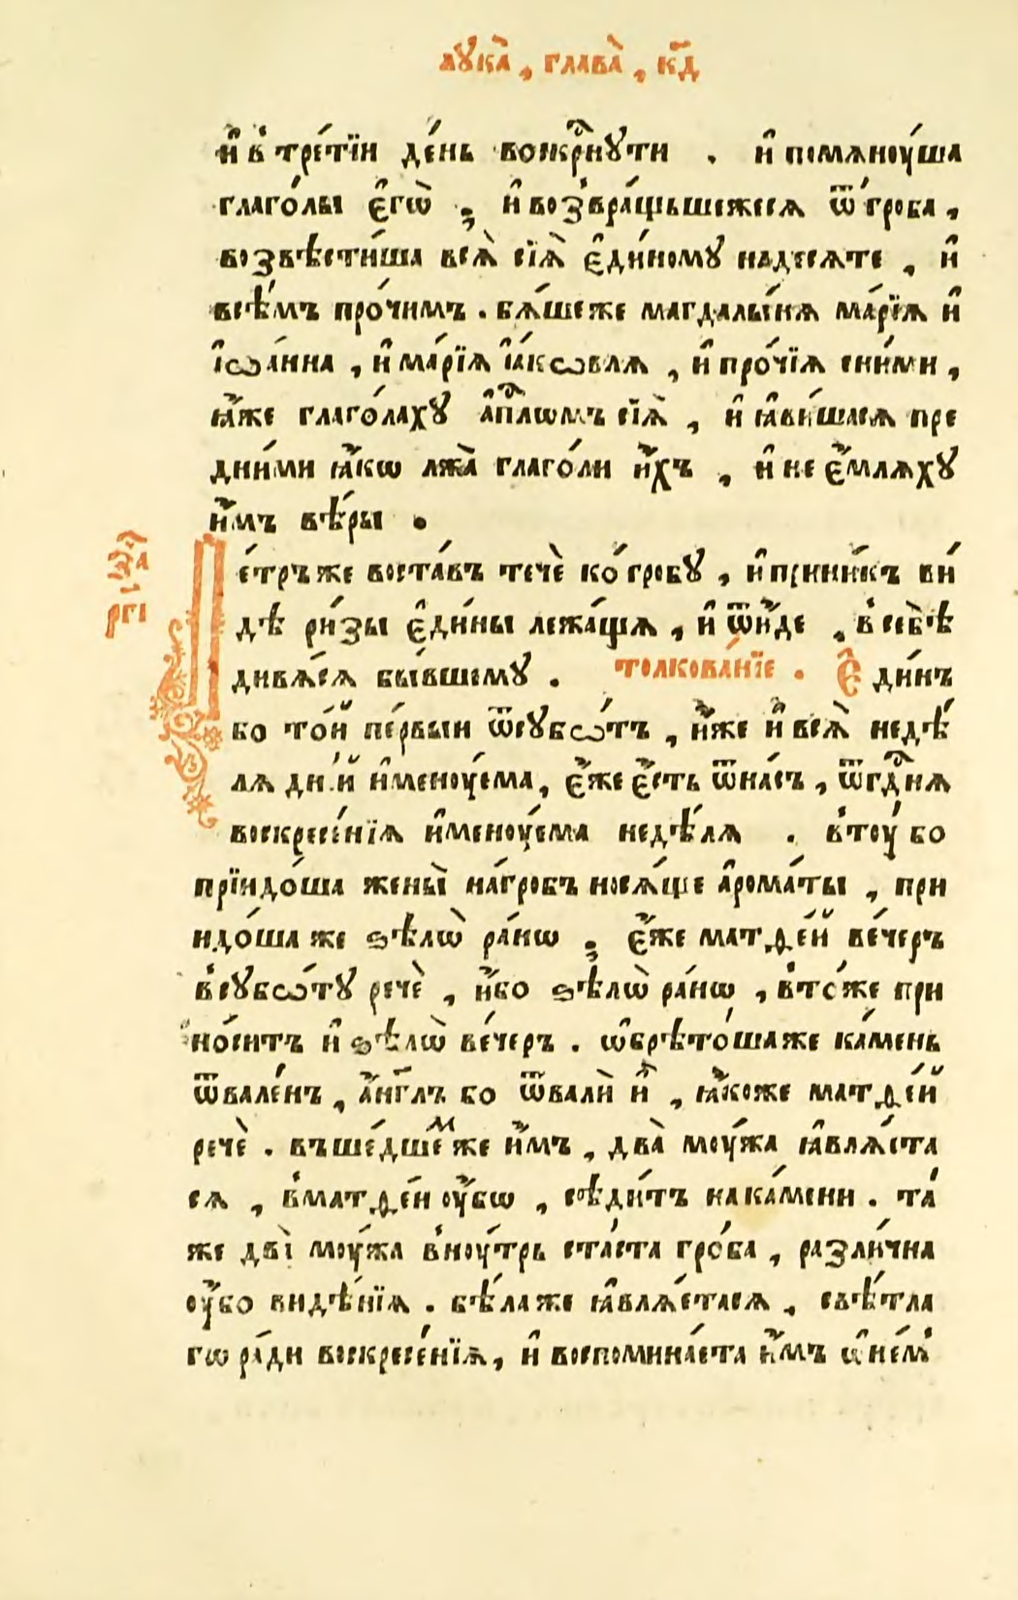 лꙋка̀, глава̀, к҃д
и҆ в҆ тре́тїи де́нь воскрⷭ҇нꙋти . и҆ помѧноу́ша
глаго́лы є҆гѡ̀ , и҆ воз̾вра́щьшежесѧ ѿ гро́ба ,
возвѣсти́ша всѧ̀ сїѧ̀ є҆ди́номꙋ надесѧте , и҆
всѣ́мъ про́чимъ . бѧ́шеже магдалы́нѧ ма́рїѧ и҆
і҆ѡа́нна , и҆ ма́рїѧ і҆а́кѡвлѧ , и҆ про́чїѧ сни́ми ,
ꙗ҆́же глаго́лахꙋ а҆пⷭ҇лѡмъ сїѧ̀ , и҆ ꙗ҆ви́шасѧ пре
дни́ми ꙗ҆́кѡ лжа̀ глаго́ли и҆́хъ , и҆ не є҆́млѧхꙋ
и҆́мъ вѣ́ры .
за
ча
рг҃і
Пе́тръже воста́въ течѐ ко́гробꙋ , и҆ прини́къ ви́
дѣ ри́зы є҆ди́ны лежа́щѧ , и҆ ѿи́де , в҆ себѣ̀
дивѧ́сѧ бы́вшемꙋ . толкова́нїе . Є҆ди́нъ
бо то́й пе́рвыи ѿсꙋбѡ́тъ , и҆́же и҆ всѧ̀ недѣ́
лѧ дни́й и҆меноу́ема , є҆́же є҆́сть ѿна́съ , ѿгдⷭ҇нѧ
воскресе́нїѧ и҆меноу́ема недѣ́лѧ . в҆тоу́ бо
прїидо́ша жены̀ на́гробъ носѧ́ще а҆рома́ты , при
идо́ша же ѕѣлѡ̀ ра́нѡ , є҆́же матѳе́й ве́черъ
в҆сꙋбѡ́тꙋ речѐ , и҆́бо ѕѣлѡ̀ ра́нѡ , в҆то́же при
но́ситъ и҆ ѕѣлѡ̀ ве́черъ . ѡ҆брѣто́шаже ка́мень
ѿвале́нъ , а҆́нг҃лъ бо ѿвалѝ и҆̀ , ꙗ҆́коже матѳе́й
речѐ . въше́дшеⷨже и҆́мъ , два̀ моу́жа ꙗ҆влѧ́ста
сѧ , в҆матѳе́и оу҆́бѡ , сѣди́тъ на ка́мени . та́
же двѣ̀ моу́жа в҆ноу́трь ста́ста гро́ба , разли́чна
оу҆́бо видѣ́нїѧ . бѣ́лаже ꙗ҆влѧ́етасѧ , свѣ́тла
гѡ ра́ди воскресе́нїѧ , и҆ воспомина́ета и҆́мъ ѡ҆не́мⸯ